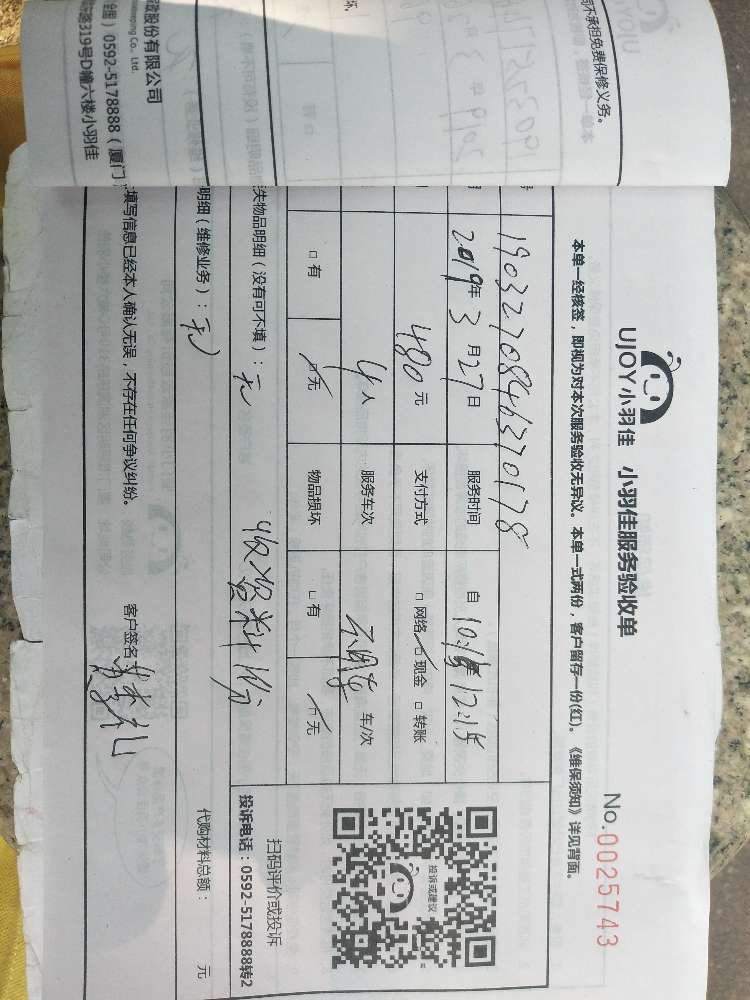 UJOY小羽佳 小羽佳服务验收单
No.0025743
本单一经核签，即视为对本次服务验收无异议。本单一式两份，客户留存一份(红)。《维保须知》详见背面。
1903270846370178
2019年3月27日 服务时间 自10:15 12:15
480元 支付方式 □网络 □现金 □转账
4人 服务车次 车/次
□有 □无 物品损坏 □有 □无
投诉或建议
扫码评价或投诉
投诉电话：0592-5178888转2
失物品明细（没有可不填）：无 收资料1份
明细（维修业务）：无 代购材料总额： 元
填写信息已经本人确认无误，不存在任何争议纠纷。 客户签名：
司不承担免费保修义务。
股份有限公司
Co., Ltd.
0592-5178888（厦门
路319号D幢六楼小羽佳